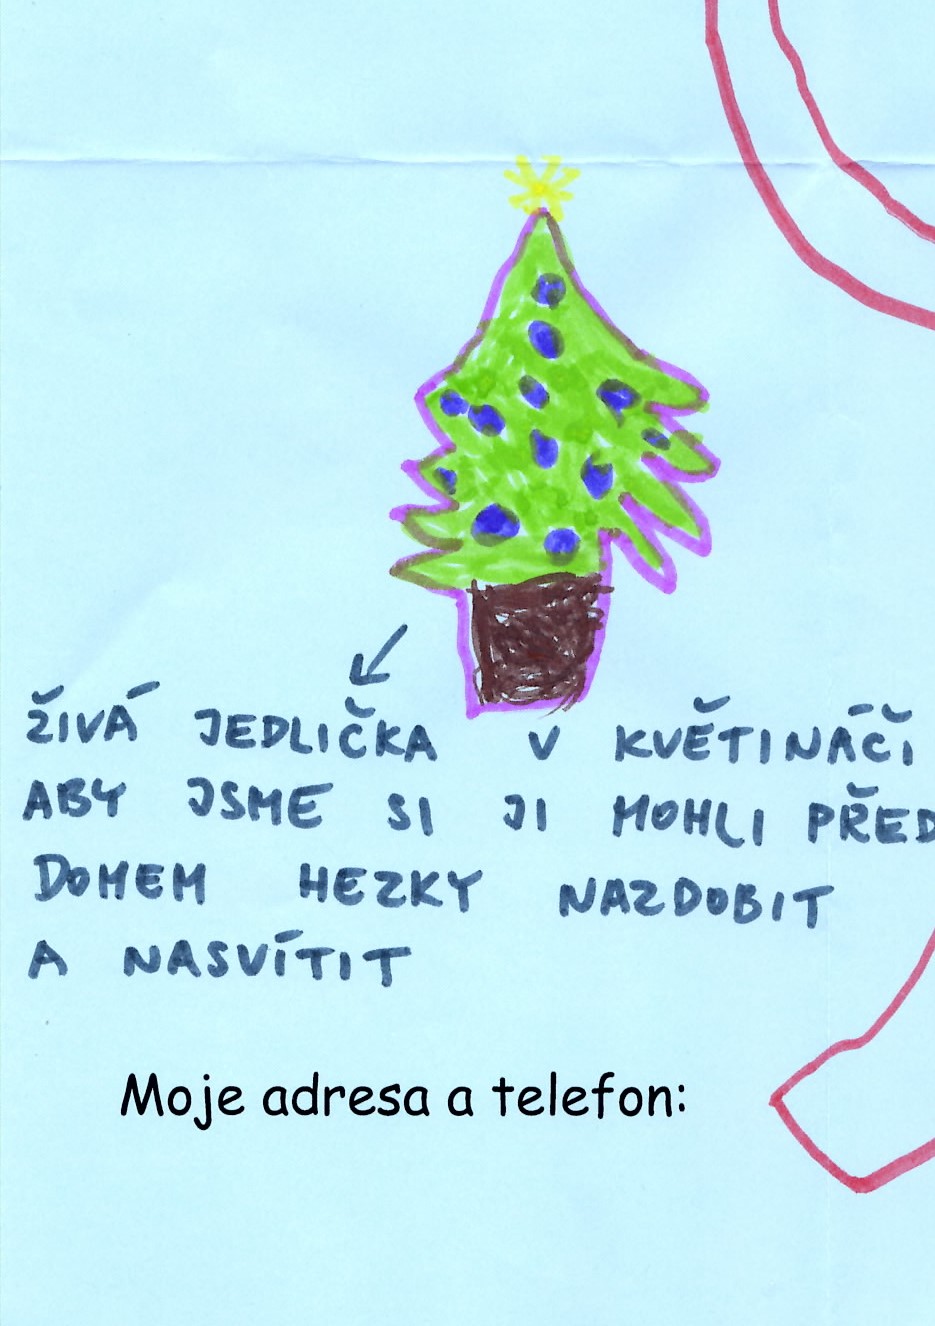 ŽIVÁ JEDLIČKA V KVĚTINÁČI
ABY JSME SI JI MOHLI PŘED
DOMEM HEZKY NAZDOBIT
A NASVÍTIT
Moje adresa a telefon: